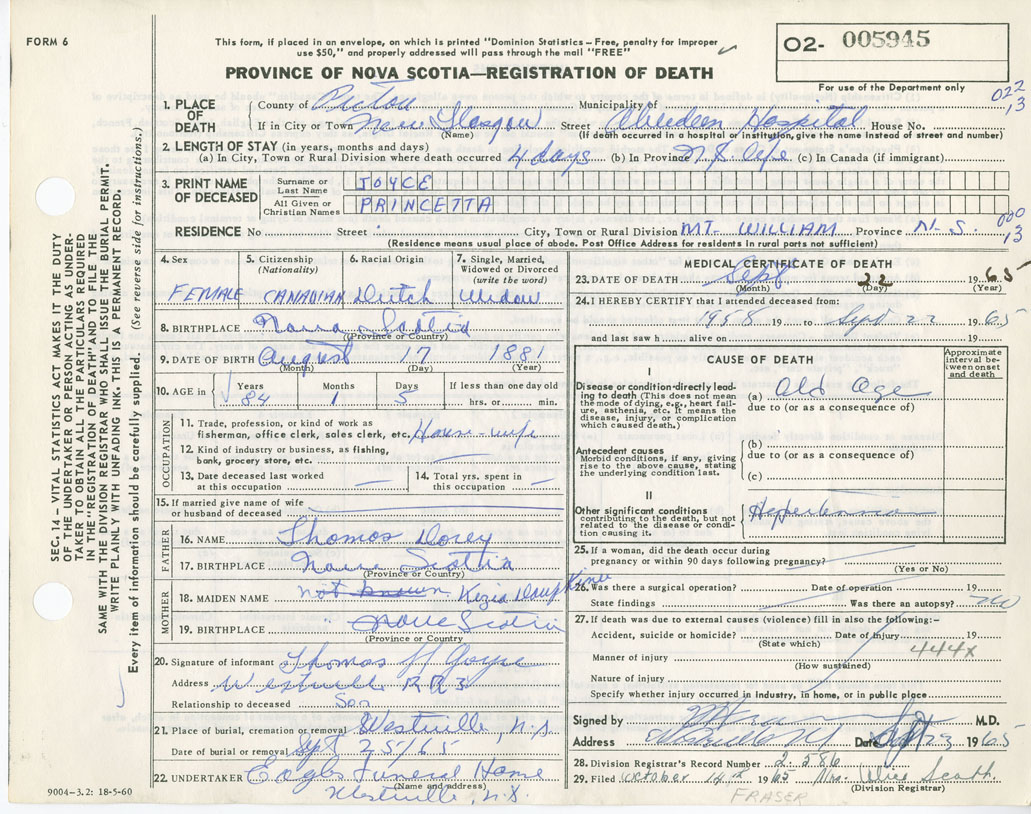 FORM 6
This form, if placed in an envelope, on which is printed "Dominion Statistics – Free, penalty for improper
use $50," and properly addressed will pass through the mail "FREE"
O2- 005945
PROVINCE OF NOVA SCOTIA—REGISTRATION OF DEATH
For use of the Department only
022
13
1. PLACE OF DEATH
County of Pictou Municipality of
If in City or Town New Glasgow Street Aberdeen Hospital House No.
(Name) (If death occurred in a hospital or institution, give the name instead of street and number)
2. LENGTH OF STAY (in years, months and days)
(a) In City, Town or Rural Division where death occurred 4 days (b) In Province N.S. life (c) In Canada (if immigrant)
3. PRINT NAME OF DECEASED
Surname or Last Name JOYCE
All Given or Christian Names PRINCETTA
000
13
RESIDENCE No Street City, Town or Rural Division MT. WILLIAM Province N.S.
(Residence means usual place of abode. Post Office Address for residents in rural parts not sufficient)
4. Sex FEMALE
5. Citizenship (Nationality) CANADIAN
6. Racial Origin Dutch
7. Single, Married, Widowed or Divorced (write the word) Widow
8. BIRTHPLACE Nova Scotia
(Province or Country)
9. DATE OF BIRTH August 17 1881
(Month) (Day) (Year)
10. AGE in Years 84 Months 1 Days 5 If less than one day old hrs. or min.
OCCUPATION
11. Trade, profession, or kind of work as
fisherman, office clerk, sales clerk, etc. House-wife
12. Kind of industry or business, as fishing,
bank, grocery store, etc.
13. Date deceased last worked at this occupation
14. Total yrs. spent in this occupation
15. If married give name of wife
or husband of deceased
FATHER
16. NAME Thomas Dorey
17. BIRTHPLACE Nova Scotia
(Province or Country)
MOTHER
18. MAIDEN NAME not known Kezia
19. BIRTHPLACE Nova Scotia
(Province or Country)
20. Signature of informant Thomas H Joyce
Address Westville RR3
Relationship to deceased Son
21. Place of burial, cremation or removal Westville, N.S
Date of burial or removal Sept 25/65
22. UNDERTAKER Eagles Funeral Home
(Name and address)
Westville, N.S.
MEDICAL CERTIFICATE OF DEATH
23. DATE OF DEATH Sept 22 1965
(Month) (Day) (Year)
24. I HEREBY CERTIFY that I attended deceased from:
1958 19 to Sept 22 1965
and last saw h alive on 19
CAUSE OF DEATH
Approximate interval between onset and death
I
Disease or condition directly leading to death (This does not mean the mode of dying, e.g., heart failure, asthenia, etc. It means the disease, injury, or complication which caused death.)
(a) Old Age
due to (or as a consequence of)
Antecedent causes
Morbid conditions, if any, giving rise to the above cause, stating the underlying condition last.
(b)
due to (or as a consequence of)
(c)
II
Other significant conditions
contributing to the death, but not related to the disease or condition causing it.
Hypertension
25. If a woman, did the death occur during
pregnancy or within 90 days following pregnancy?
(Yes or No)
26. Was there a surgical operation? Date of operation 19
State findings Was there an autopsy? no
27. If death was due to external causes (violence) fill in also the following:-
Accident, suicide or homicide? Date of injury 19
(State which)
444X
Manner of injury
(How sustained)
Nature of injury
Specify whether injury occurred in industry, in home, or in public place
Signed by M.D.
Address Westville Date Sept 23 1965
28. Division Registrar's Record Number 2-586
29. Filed October 14th 1965 Mrs. Scott
(Division Registrar)
FRASER
9004-3.2: 18-5-60
SEC. 14 – VITAL STATISTICS ACT MAKES IT THE DUTY
OF THE UNDERTAKER OR PERSON ACTING AS UNDER-
TAKER TO OBTAIN ALL THE PARTICULARS REQUIRED
IN THE "REGISTRATION OF DEATH" AND TO FILE THE
SAME WITH THE DIVISION REGISTRAR WHO SHALL ISSUE THE BURIAL PERMIT.
WRITE PLAINLY WITH UNFADING INK. THIS IS A PERMANENT RECORD.
Every item of information should be carefully supplied. (See reverse side for instructions.)